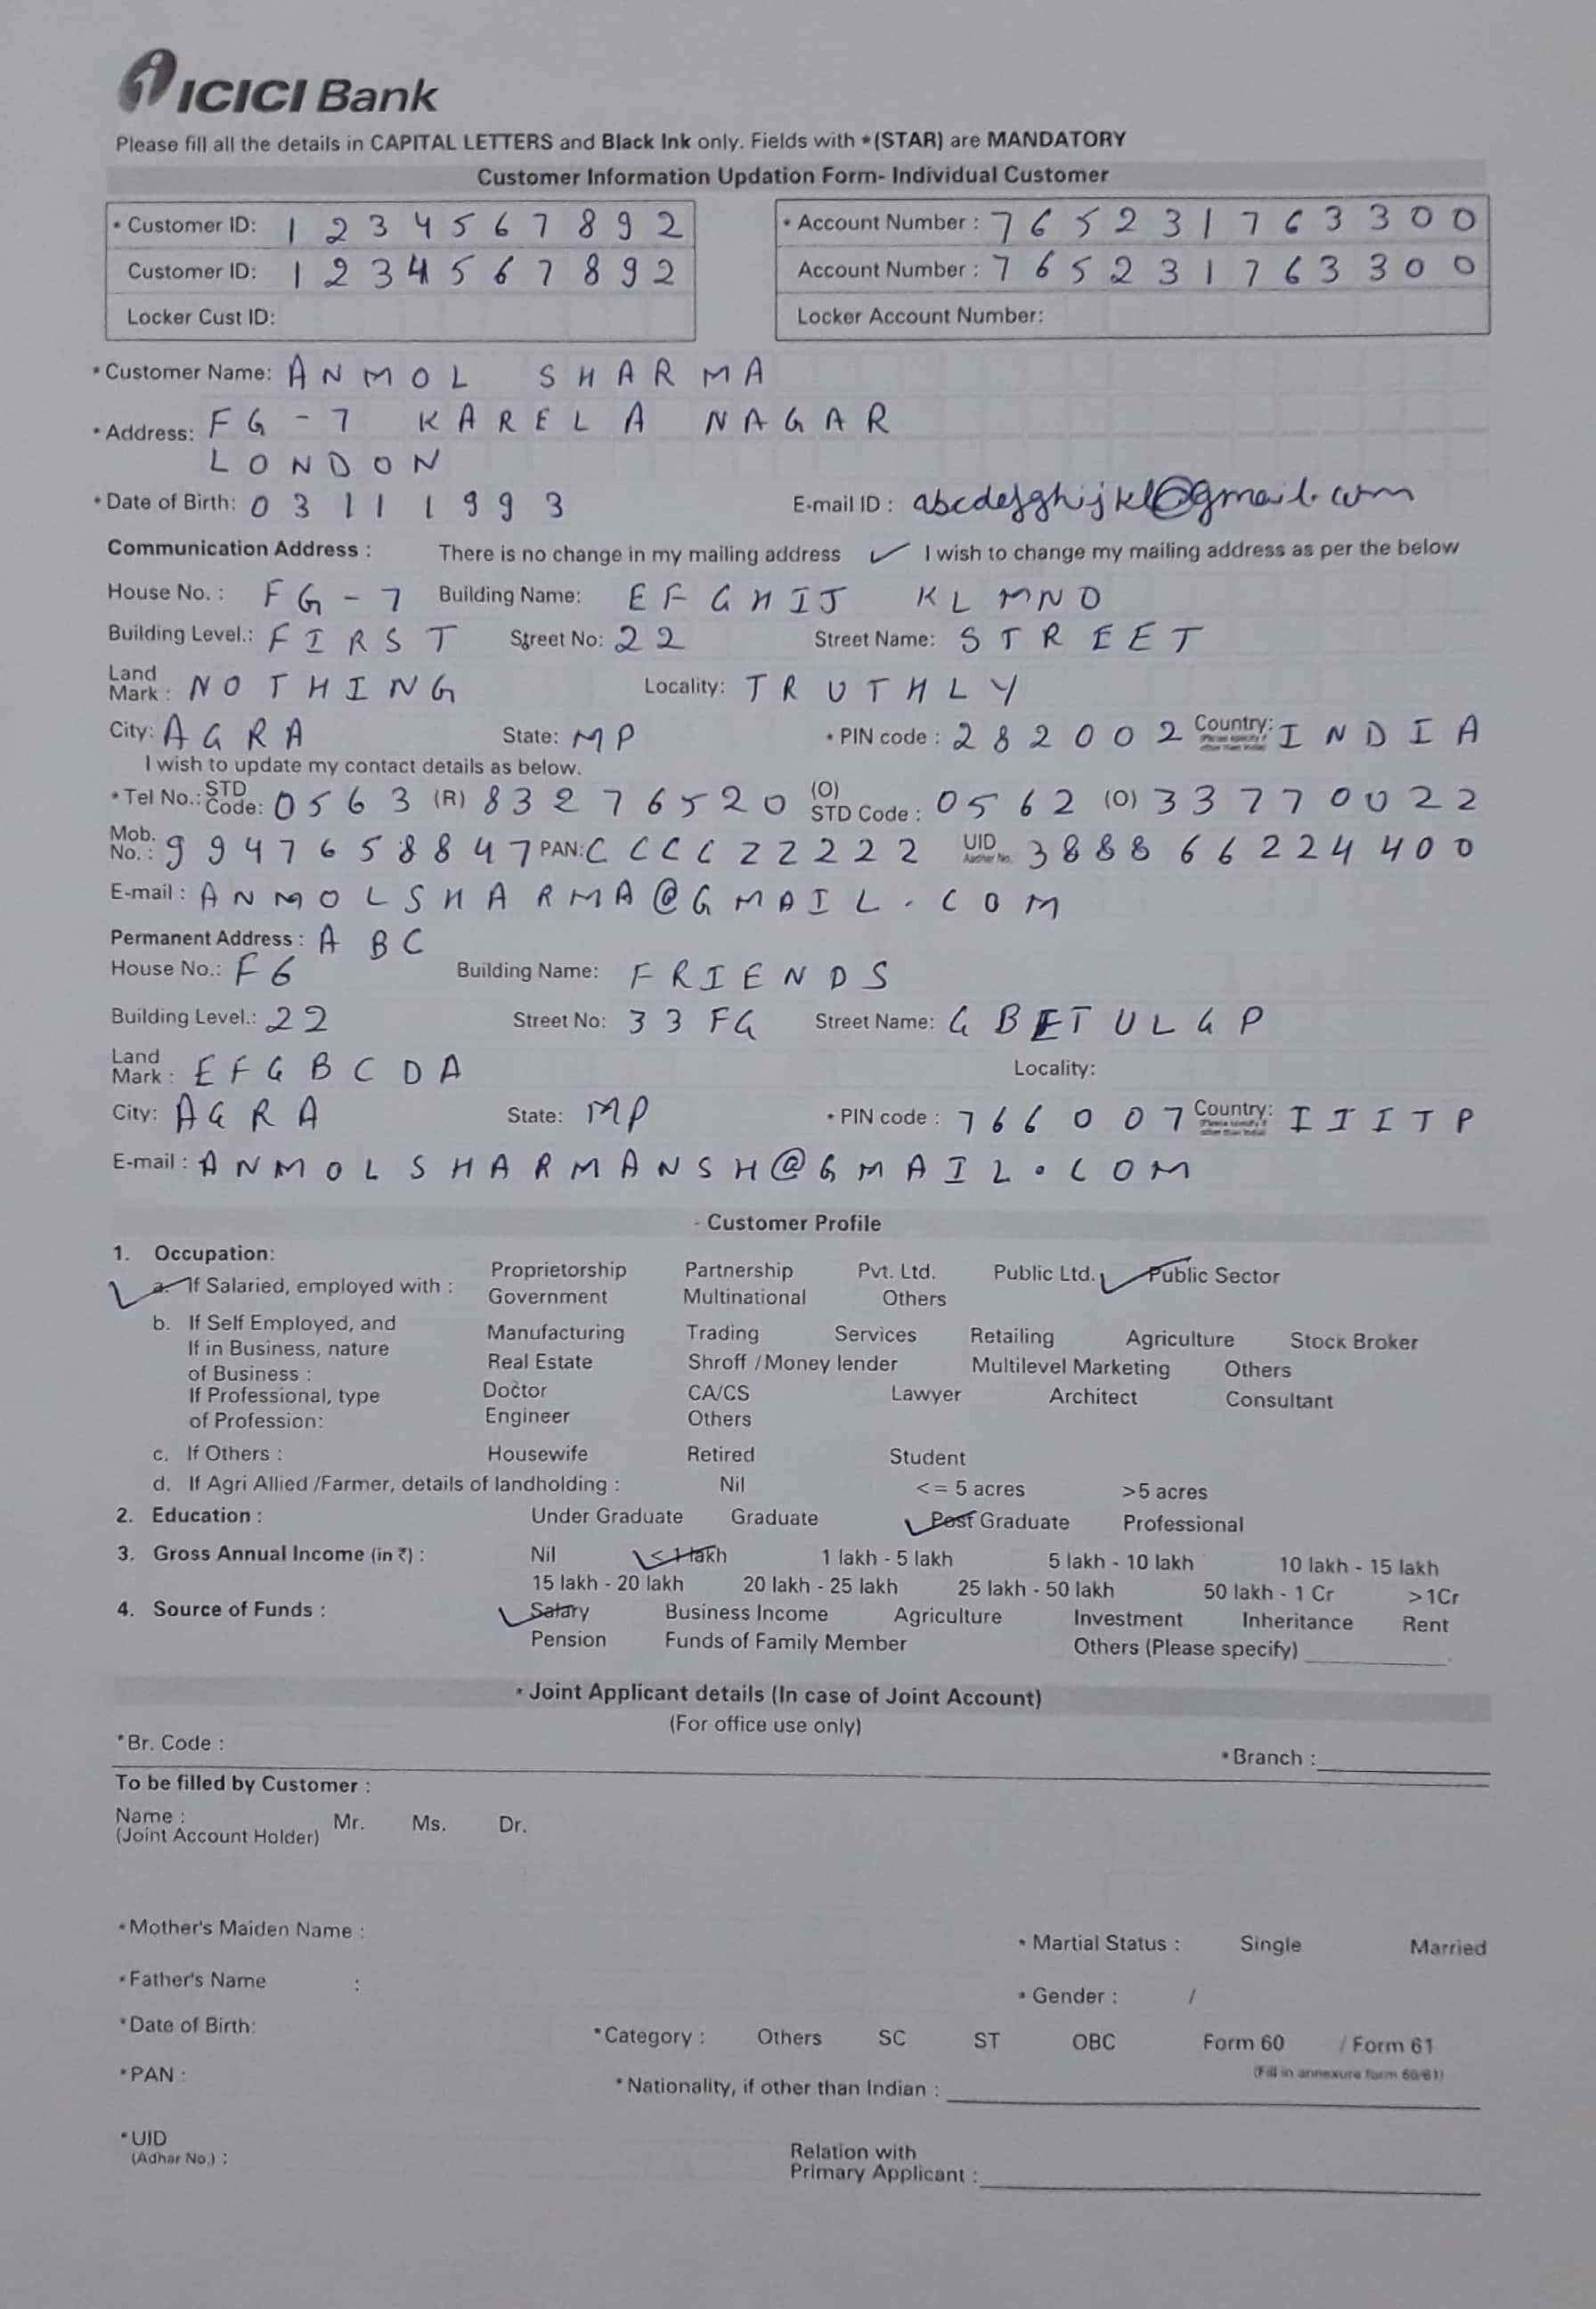 ICICI Bank
Please fill all the details in CAPITAL LETTERS and Black Ink only. Fields with *(STAR) are MANDATORY
Customer Information Updation Form- Individual Customer
* Customer ID: 1 2 3 4 5 6 7 8 9 2 * Account Number : 7 6 5 2 3 1 7 6 3 3 0 0
Customer ID: 1 2 3 4 5 6 7 8 9 2 Account Number : 7 6 5 2 3 1 7 6 3 3 0 0
Locker Cust ID: Locker Account Number:
* Customer Name: ANMOL SHARMA
* Address: FG-7 KARELA NAGAR
LONDON
* Date of Birth: 03111993 E-mail ID : abcdefghijkl@gmail.com
Communication Address : There is no change in my mailing address ✓ I wish to change my mailing address as per the below
House No. : FG-7 Building Name: EFGHIJ KLMNO
Building Level.: FIRST Street No: 22 Street Name: STREET
Land Mark : NOTHING Locality: TRUTHLY
City: AGRA State: MP * PIN code : 282002 Country: INDIA
I wish to update my contact details as below.
* Tel No.: STD Code: 0563 (R) 83276520 (O) STD Code : 0562 (O) 33770022
Mob. No. : 9947658847 PAN: CCCCZ2222 UID Aadhar No. 388866224400
E-mail : ANMOLSHARMA@GMAIL.COM
Permanent Address : ABC
House No.: F6 Building Name: FRIENDS
Building Level.: 22 Street No: 33FG Street Name: GBETULGP
Land Mark : EFGBCDA Locality:
City: AGRA State: MP * PIN code : 766007 Country: IIITP
E-mail : ANMOLSHARMANSH@GMAIL.COM
Customer Profile
1. Occupation:
✓ a. If Salaried, employed with : Proprietorship Partnership Pvt. Ltd. Public Ltd. ✓ Public Sector
Government Multinational Others
b. If Self Employed, and If in Business, nature of Business : Manufacturing Trading Services Retailing Agriculture Stock Broker
Real Estate Shroff /Money lender Multilevel Marketing Others
If Professional, type of Profession: Doctor CA/CS Lawyer Architect Consultant
Engineer Others
c. If Others : Housewife Retired Student
d. If Agri Allied /Farmer, details of landholding : Nil <= 5 acres >5 acres
2. Education : Under Graduate Graduate ✓ Post Graduate Professional
3. Gross Annual Income (in ₹) : Nil ✓ < 1 lakh 1 lakh - 5 lakh 5 lakh - 10 lakh 10 lakh - 15 lakh
15 lakh - 20 lakh 20 lakh - 25 lakh 25 lakh - 50 lakh 50 lakh - 1 Cr >1Cr
4. Source of Funds : ✓ Salary Business Income Agriculture Investment Inheritance Rent
Pension Funds of Family Member Others (Please specify)
* Joint Applicant details (In case of Joint Account)
(For office use only)
*Br. Code : * Branch :
To be filled by Customer :
Name : Mr. Ms. Dr.
(Joint Account Holder)
*Mother's Maiden Name : * Martial Status : Single Married
*Father's Name : * Gender : /
*Date of Birth: *Category : Others SC ST OBC Form 60 / Form 61
(Fill in annexure form 60/61)
*PAN : *Nationality, if other than Indian :
*UID
(Adhar No.) : Relation with
Primary Applicant :